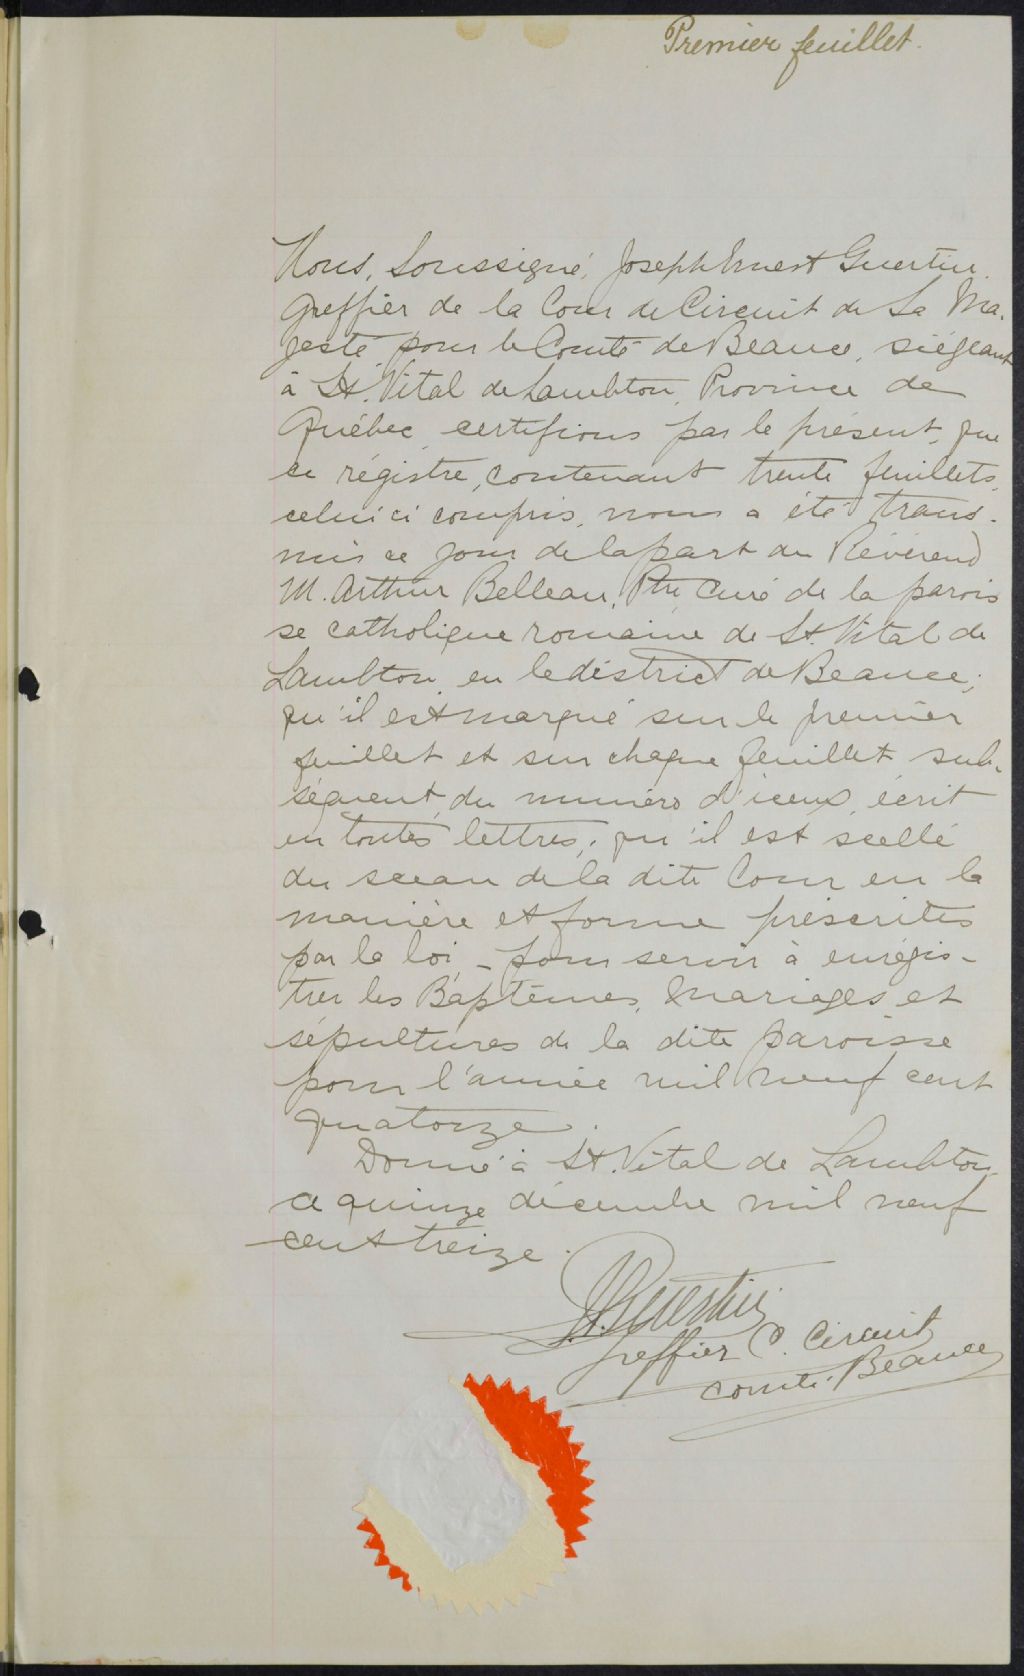 Premier feuillet.
Nous, Soussigné, Joseph Ernest Guertin,
greffier de la Cour de Circuit de Sa Ma-
jesté pour le Comté de Beauce, siégeant
à St. Vital de Lambton, Province de
Québec, certifions par le présent, que
ce régistre, contenant trente feuillets,
celui ci compris, nous a été trans-
mis ce jour de la part du Révérend
M. Arthur Belleau, Ptre Curé de la parois
se catholique romaine de St. Vital de
Lambton, en le district de Beauce;
qu'il est marqué sur le premier
feuillet et sur chaque feuillet sub-
séquent, du numéro d'iceux, écrit
en toutes lettres; qu'il est scellé
du sceau de la dite Cour en la
manière et forme préscrites
par la loi, - pour servir à enrégis-
trer les Baptêmes, Mariages et
sépultures de la dite paroisse
pour l'année mil neuf cent
quatorze.
Donné à St. Vital de Lambton,
ce quinze décembre mil neuf
cent treize.
Guertin
Greffier C. Circuit
comté Beauce